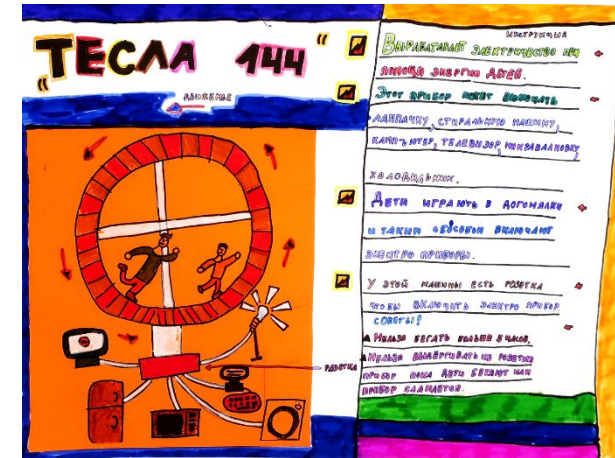 "ТЕСЛА 144"
движенье
розетка
Инструкция
Вырабатавает электричество при
помощи энергии детей.
Этот прибор может включать
лампачку, стиральную машину,
кампъютер, телевизор, микравалновку,
холодильник.
Дети играють в догонялки
и таким способом включают
электро приборы.
У этой машины есть розетка
что бы включить электро прибор
советы!
Нельзя бегать больше 3 часов.
Нельзя выдёргивать из розетки
прибор пока дети бегают или
прибор сламается.